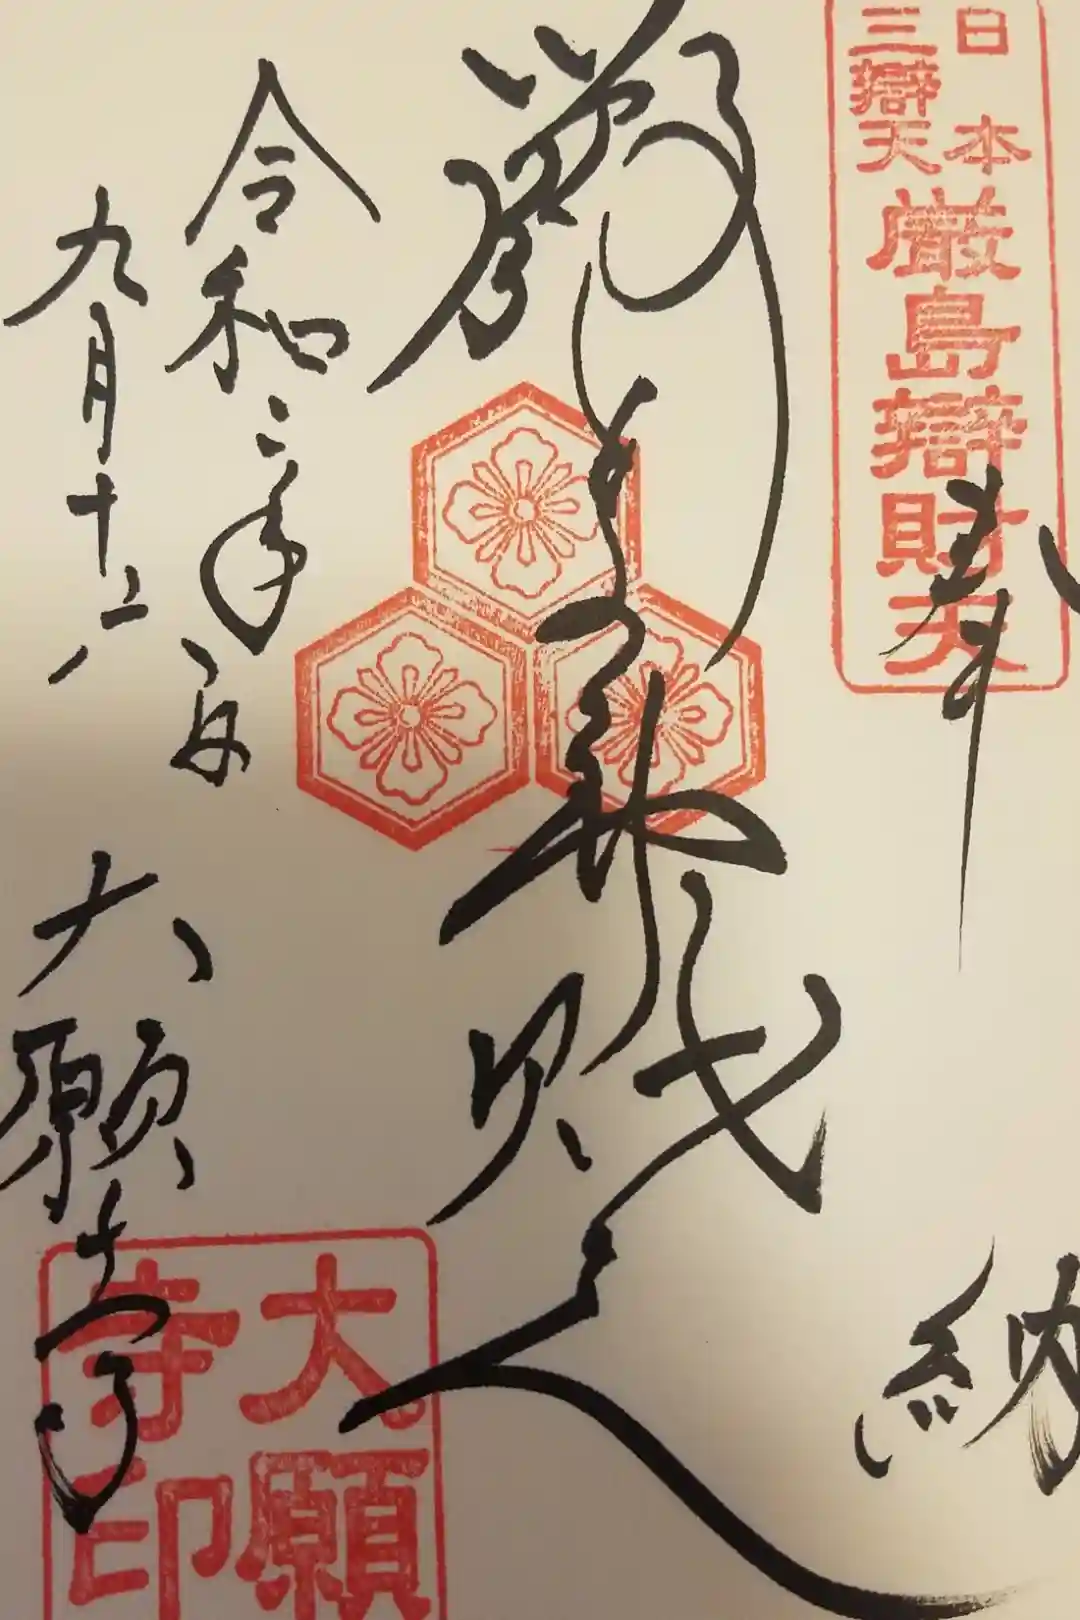 日本
三辯天
厳島辯財天
奉納
嚴島辯財天
令和二年
九月十二
大願寺
大願寺印